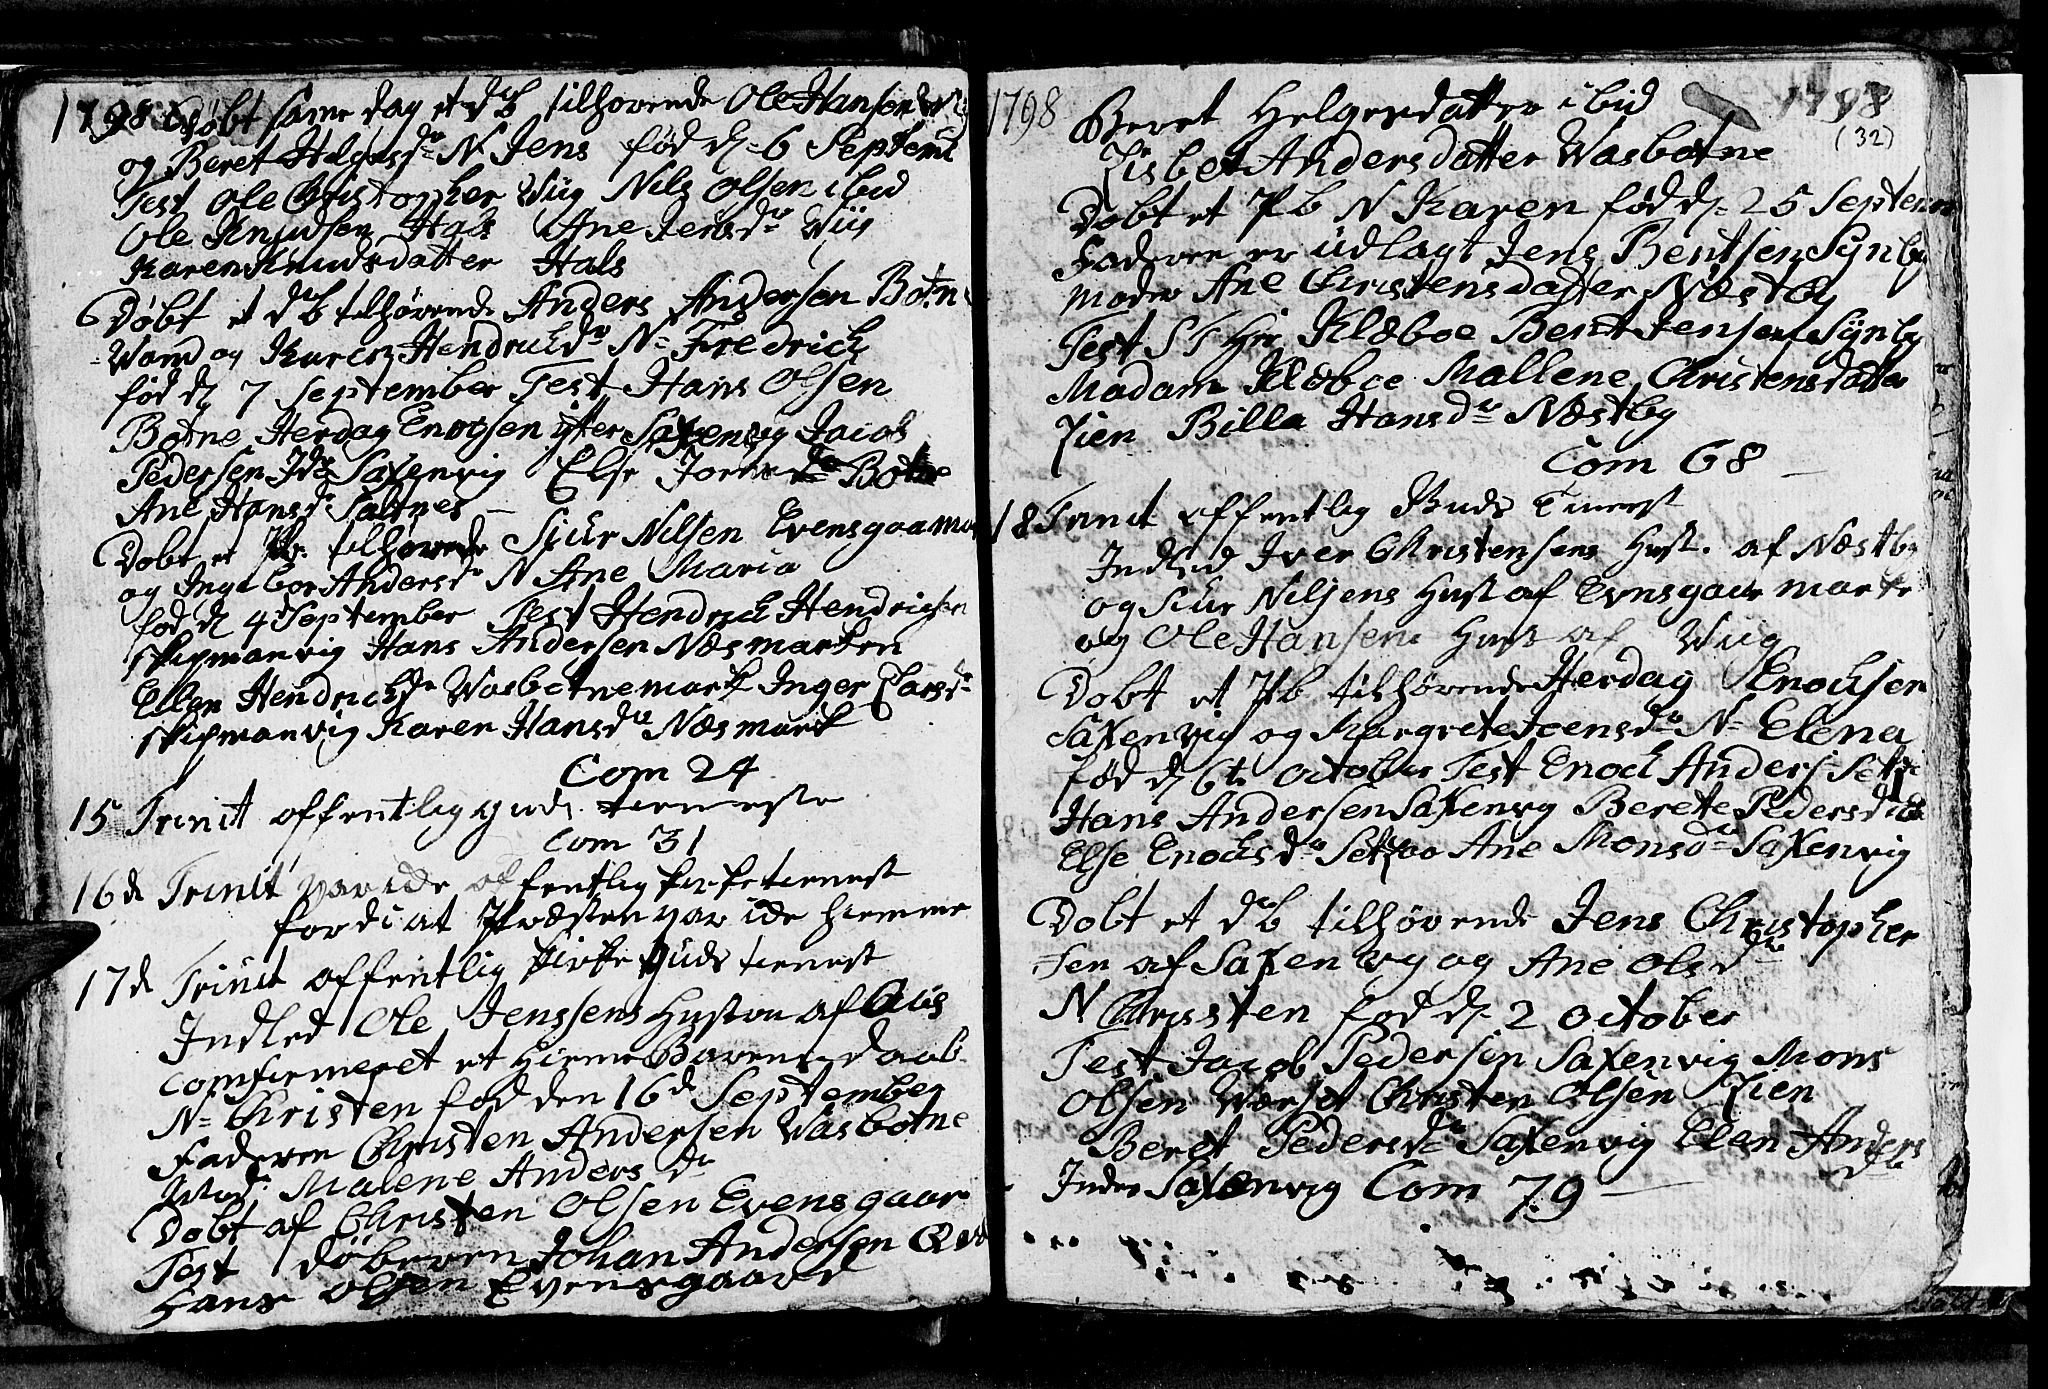 1798 Døbt same dag et db tilhørende Ole Hansen
og Beret Helgesdr N Jens fød d 6 Septemb
Test Ole Christopher Wiig Nils Olsen ibid
Ole Knudsen Hals Ane Jensdr Wiig
Karen Knudsdatter Hals
Døbt et db tilhørende Anders Andersen Botn
Wand og Karen Hendrichdr N= Fredrich
fød d 7 September Test Hans Olsen
Botne Herdag Enocsen Saxenvig Jacob
Pedersen Saxenvig Else Botne
Ane Hansdr Saltnes
Døbt et Pb tilhørende Siur Nilsen Evensgaamar
og Ingebor Andersdr N Ane Maria
fød d 4 September Test Hendrich Hendrichsen
skipmanvig Hans Andersen Næsmarken
Ellen Hendrichdr Wasbotnemark Inger Larsdr
skipmanvig Karen Hansdr Næsmark
Com 24
15 Trinit offentlig guds tieneste
Com 31
16d Trinit var icke offentlig kirketienest
fordi at Præsten var icke hiemme
17d Trinit offentlig kirke guds tienest
Indled Ole Jenssens Hustrue af
Comfirmeret et Hieme Barnedaab
N= Christen fød den 16d September
Faderen Christen Andersen Wasbotne
Mod: Malene Andersdr
Døbt af Christen Olsen Evensgaar
Test døberen Johan Andersen
Hans Olsen Evensgaard
1798 1798
(32)
Beret Helgesdatter ibid
Lisbet Andersdatter Wasbotne
Døbt et Pb N Karen fød d 25 Septem
Faderen er udlagt Jens Bentsen Synby
Moder Ane Christensdatter Næstby
Test S T Hr Klæboe Bent Jensen Synby
Madam Klæboe Mallene Christensdatter
Lien Billa Hansdr Næstby
Com 68
18 Trinit offentlig Guds Tienest
Indled Iver Christensens Hust. af Næstby
og Siur Nilsens Hust af Evnsgaar marke
og Ole Hansens Hust af Wiig
Døbt et Pb tilhørende Herdag Enochsen
Saxenvig og Margrete Joensdr N= Elena
fød d 6te October Test Enoch Anders
Hans Andersen Saxenvig Berete Pedersdr
Else Enochsdr Ane Monsdr Saxenvig
Døbt et db tilhørende Jens Christopher
sen af Saxenvig og Ane Olsdr
N Christen fød d 2 October
Test Jacob Pedersen Saxenvig Mons
Olsen Wærset Christen Olsen Lien
Beret Pedersdr Saxenvig Elen Anders
dr
Inder Saxenvig Com 79